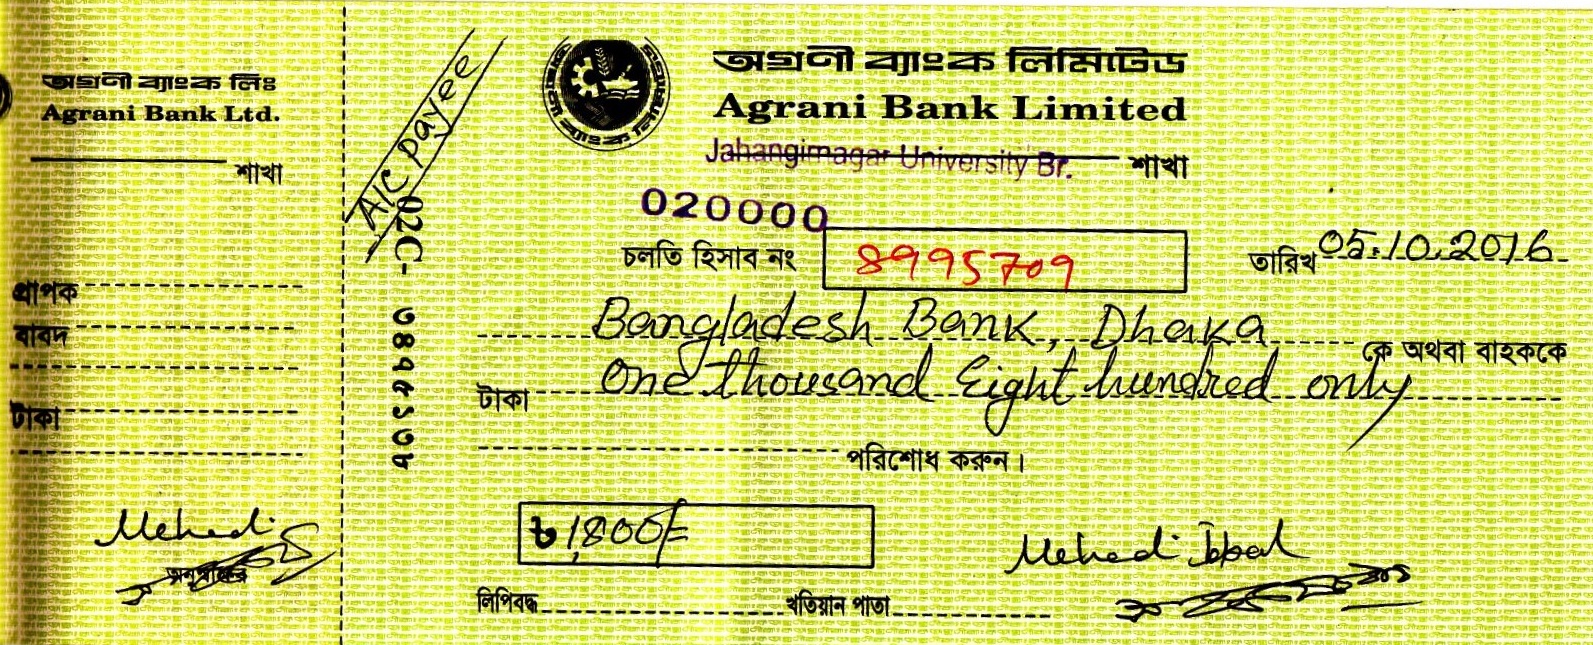 অগ্রণী ব্যাংক লিঃ
Agrani Bank Ltd.
শাখা
প্রাপক
বাবদ
টাকা
Mehedi
A/C payee
02C-
অগ্রণী ব্যাংক লিমিটেড
Agrani Bank Limited
Jahangirnagar University Br. শাখা
020000
চলতি হিসাব নং 8995709
তারিখ 05.10.2016
Bangladesh Bank, Dhaka কে অথবা বাহককে
টাকা One thousand Eight hundred only
পরিশোধ করুন।
৳ 1,800/=
Mehedi Iqbal
লিপিবদ্ধ খতিয়ান পাতা